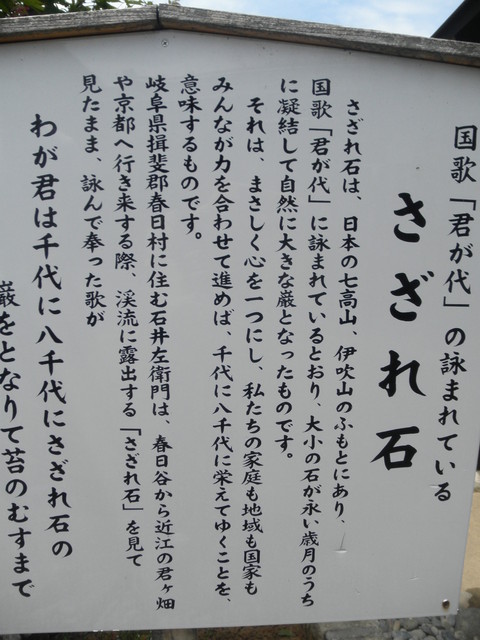 国歌「君が代」の詠まれている
さざれ石
さざれ石は、日本の七高山、伊吹山のふもとにあり、
国歌「君が代」に詠まれているとおり、大小の石が永い歳月のうち
に凝結して自然に大きな巌となったものです。
それは、まさしく心を一つにし、私たちの家庭も地域も国家も
みんなが力を合わせて進めば、千代に八千代に栄えてゆくことを、
意味するものです。
岐阜県揖斐郡春日村に住む石井左衛門は、春日谷から近江の君ヶ畑
や京都へ行き来する際、渓流に露出する「さざれ石」を見て
見たまま、詠んで奉った歌が
わが君は千代に八千代にさざれ石の
巌をとなりて苔のむすまで